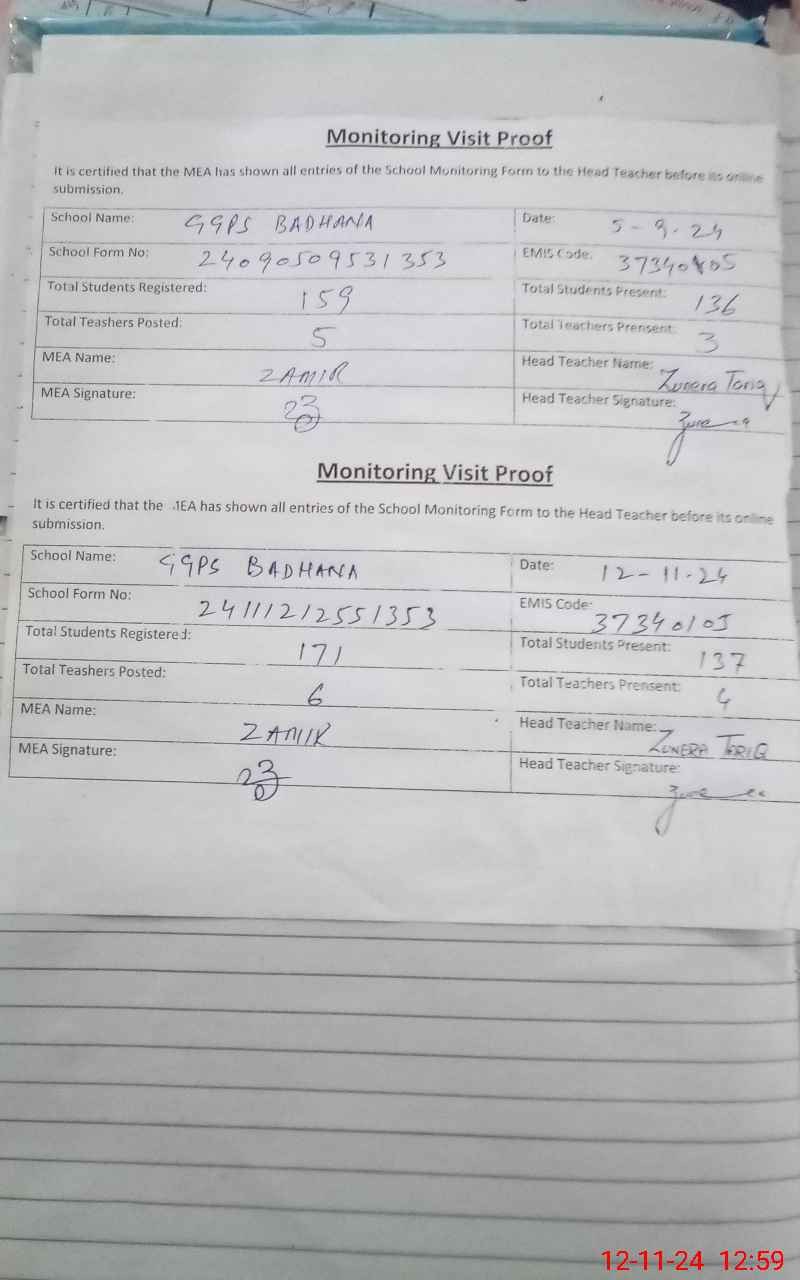 Monitoring Visit Proof
It is certified that the MEA has shown all entries of the School Monitoring Form to the Head Teacher before its online
submission.
School Name: GGPS BADHANA Date: 5-9-24
School Form No: 24090509531353 EMIS Code: 37340105
Total Students Registered: 159 Total Students Present: 136
Total Teashers Posted: 5 Total Teachers Prensent: 3
MEA Name: ZAMIR Head Teacher Name: Zunera Tariq
MEA Signature: Head Teacher Signature:
Monitoring Visit Proof
It is certified that the MEA has shown all entries of the School Monitoring Form to the Head Teacher before its online
submission.
School Name: GGPS BADHANA Date: 12-11-24
School Form No: 24111212551353 EMIS Code: 37340105
Total Students Registered: 171 Total Students Present: 137
Total Teashers Posted: 6 Total Teachers Prensent: 4
MEA Name: ZAMIR Head Teacher Name: ZUNERA TARIQ
MEA Signature: Head Teacher Signature:
12-11-24 12:59